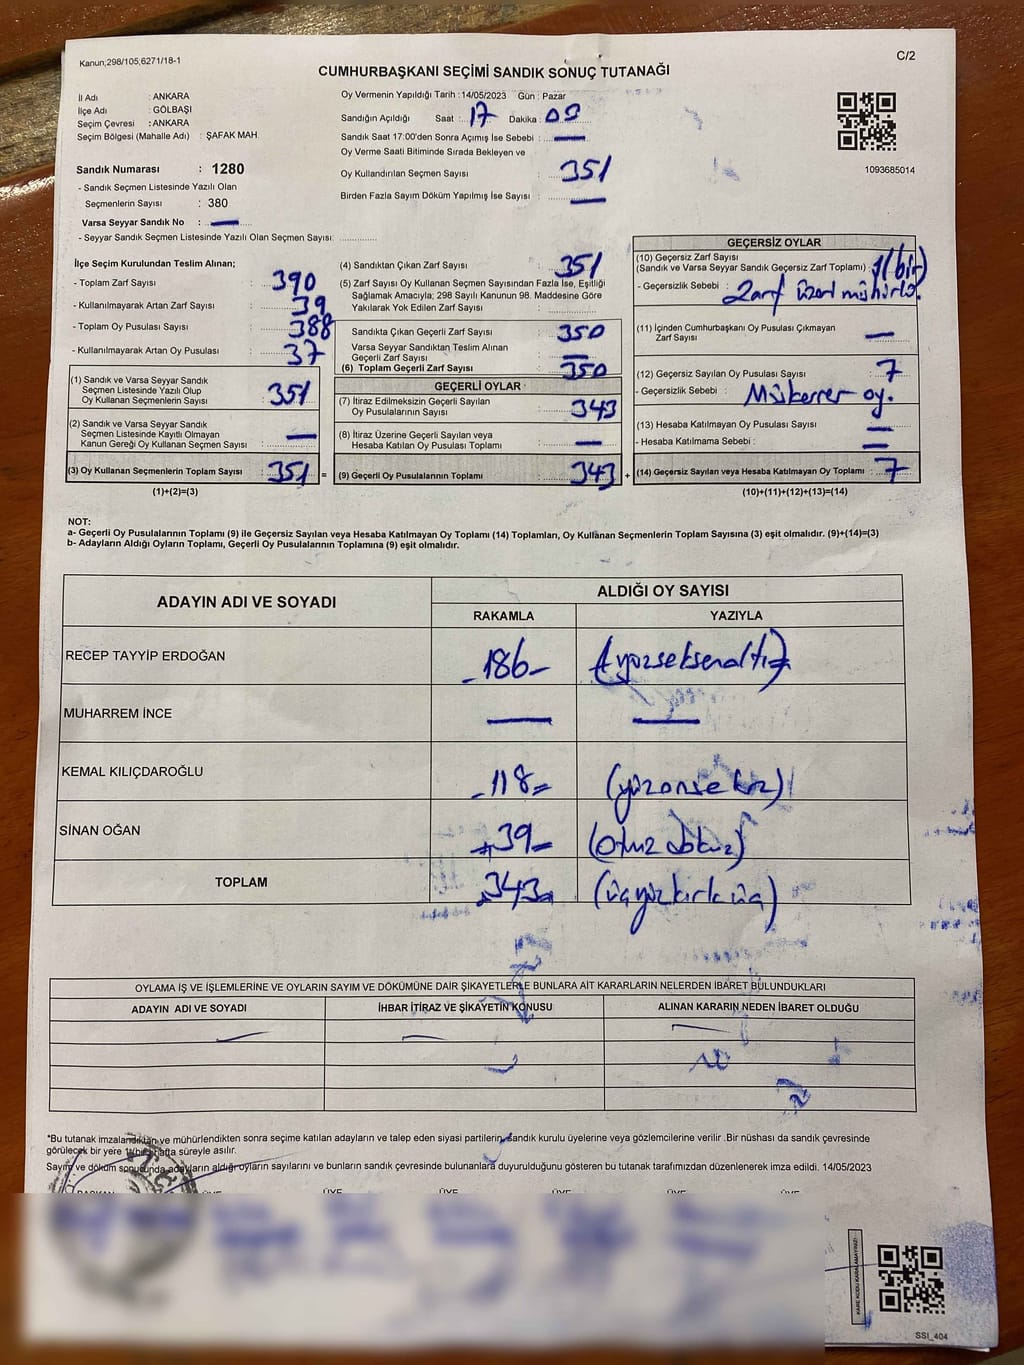 Kanun;298/105;6271/18-1
C/2
CUMHURBAŞKANI SEÇİMİ SANDIK SONUÇ TUTANAĞI
İl Adı : ANKARA
İlçe Adı : GÖLBAŞI
Seçim Çevresi : ANKARA
Seçim Bölgesi (Mahalle Adı) : ŞAFAK MAH.
Sandık Numarası : 1280
- Sandık Seçmen Listesinde Yazılı Olan
Seçmenlerin Sayısı : 380
Varsa Seyyar Sandık No : —
- Seyyar Sandık Seçmen Listesinde Yazılı Olan Seçmen Sayısı:
Oy Vermenin Yapıldığı Tarih : 14/05/2023 Gün : Pazar
Sandığın Açıldığı Saat : 17 Dakika :
Sandık Saat 17:00'den Sonra Açımış İse Sebebi : —
Oy Verme Saati Bitiminde Sırada Bekleyen ve
Oy Kullandırılan Seçmen Sayısı : 351
Birden Fazla Sayım Döküm Yapılmış İse Sayısı : —
1093685014
İlçe Seçim Kurulundan Teslim Alınan;
- Toplam Zarf Sayısı : 390
- Kullanılmayarak Artan Zarf Sayısı : 39
- Toplam Oy Pusulası Sayısı : 388
- Kullanılmayarak Artan Oy Pusulası : 37
(1) Sandık ve Varsa Seyyar Sandık
Seçmen Listesinde Yazılı Olup
Oy Kullanan Seçmenlerin Sayısı : 351
(2) Sandık ve Varsa Seyyar Sandık
Seçmen Listesinde Kayıtlı Olmayan
Kanun Gereği Oy Kullanan Seçmen Sayısı : —
(3) Oy Kullanan Seçmenlerin Toplam Sayısı : 351 =
(1)+(2)=(3)
(4) Sandıktan Çıkan Zarf Sayısı : 351
(5) Zarf Sayısı Oy Kullanan Seçmen Sayısından Fazla İse, Eşitliği
Sağlamak Amacıyla; 298 Sayılı Kanunun 98. Maddesine Göre
Yakılarak Yok Edilen Zarf Sayısı :
Sandıkta Çıkan Geçerli Zarf Sayısı : 350
Varsa Seyyar Sandıktan Teslim Alınan
Geçerli Zarf Sayısı : —
(6) Toplam Geçerli Zarf Sayısı : 350
GEÇERLİ OYLAR
(7) İtiraz Edilmeksizin Geçerli Sayılan
Oy Pusulalarının Sayısı : 343
(8) İtiraz Üzerine Geçerli Sayılan veya
Hesaba Katılan Oy Pusulaları Toplamı : —
(9) Geçerli Oy Pusulalarının Toplamı : 343 +
GEÇERSİZ OYLAR
(10) Geçersiz Zarf Sayısı
(Sandık ve Varsa Seyyar Sandık Geçersiz Zarf Toplamı) : 1(bir)
- Geçersizlik Sebebi : Zarf üzeri mühürlü.
(11) İçinden Cumhurbaşkanı Oy Pusulası Çıkmayan
Zarf Sayısı : —
(12) Geçersiz Sayılan Oy Pusulası Sayısı : 7
- Geçersizlik Sebebi : Mükerrer oy.
(13) Hesaba Katılmayan Oy Pusulası Sayısı : —
- Hesaba Katılmama Sebebi : —
(14) Geçersiz Sayılan veya Hesaba Katılmayan Oy Toplamı : 7
(10)+(11)+(12)+(13)=(14)
NOT:
a- Geçerli Oy Pusulalarının Toplamı (9) ile Geçersiz Sayılan veya Hesaba Katılmayan Oy Toplamı (14) Toplamları, Oy Kullanan Seçmenlerin Toplam Sayısına (3) eşit olmalıdır. (9)+(14)=(3)
b- Adayların Aldığı Oyların Toplamı, Geçerli Oy Pusulalarının Toplamına (9) eşit olmalıdır.
ADAYIN ADI VE SOYADI
ALDIĞI OY SAYISI
RAKAMLA YAZIYLA
RECEP TAYYİP ERDOĞAN -186- (yüzseksenaltı)
MUHARREM İNCE — —
KEMAL KILIÇDAROĞLU -118= (yüzonsekiz)
SİNAN OĞAN 39- (Otuz dokuz)
TOPLAM 343 (üçyüzkırküç)
OYLAMA İŞ VE İŞLEMLERİNE VE OYLARIN SAYIM VE DÖKÜMÜNE DAİR ŞİKAYETLERLE BUNLARA AİT KARARLARIN NELERDEN İBARET BULUNDUKLARI
ADAYIN ADI VE SOYADI İHBAR İTİRAZ VE ŞİKAYETİN KONUSU ALINAN KARARIN NEDEN İBARET OLDUĞU
*Bu tutanak imzalandıktan ve mühürlendikten sonra seçime katılan adayların ve talep eden siyasi partilerin, sandık kurulu üyelerine veya gözlemcilerine verilir. Bir nüshası da sandık çevresinde
görülecek bir yere 1 (bir) hafta süreyle asılır.
Sayım ve döküm sonucunda adayların aldığı oyların sayılarını ve bunların sandık çevresinde bulunanlara duyurulduğunu gösteren bu tutanak tarafımızdan düzenlenerek imza edildi. 14/05/2023
BAŞKAN ÜYE ÜYE ÜYE ÜYE ÜYE ÜYE
KARE KODU KARALAMAYINIZ!
SSI_404